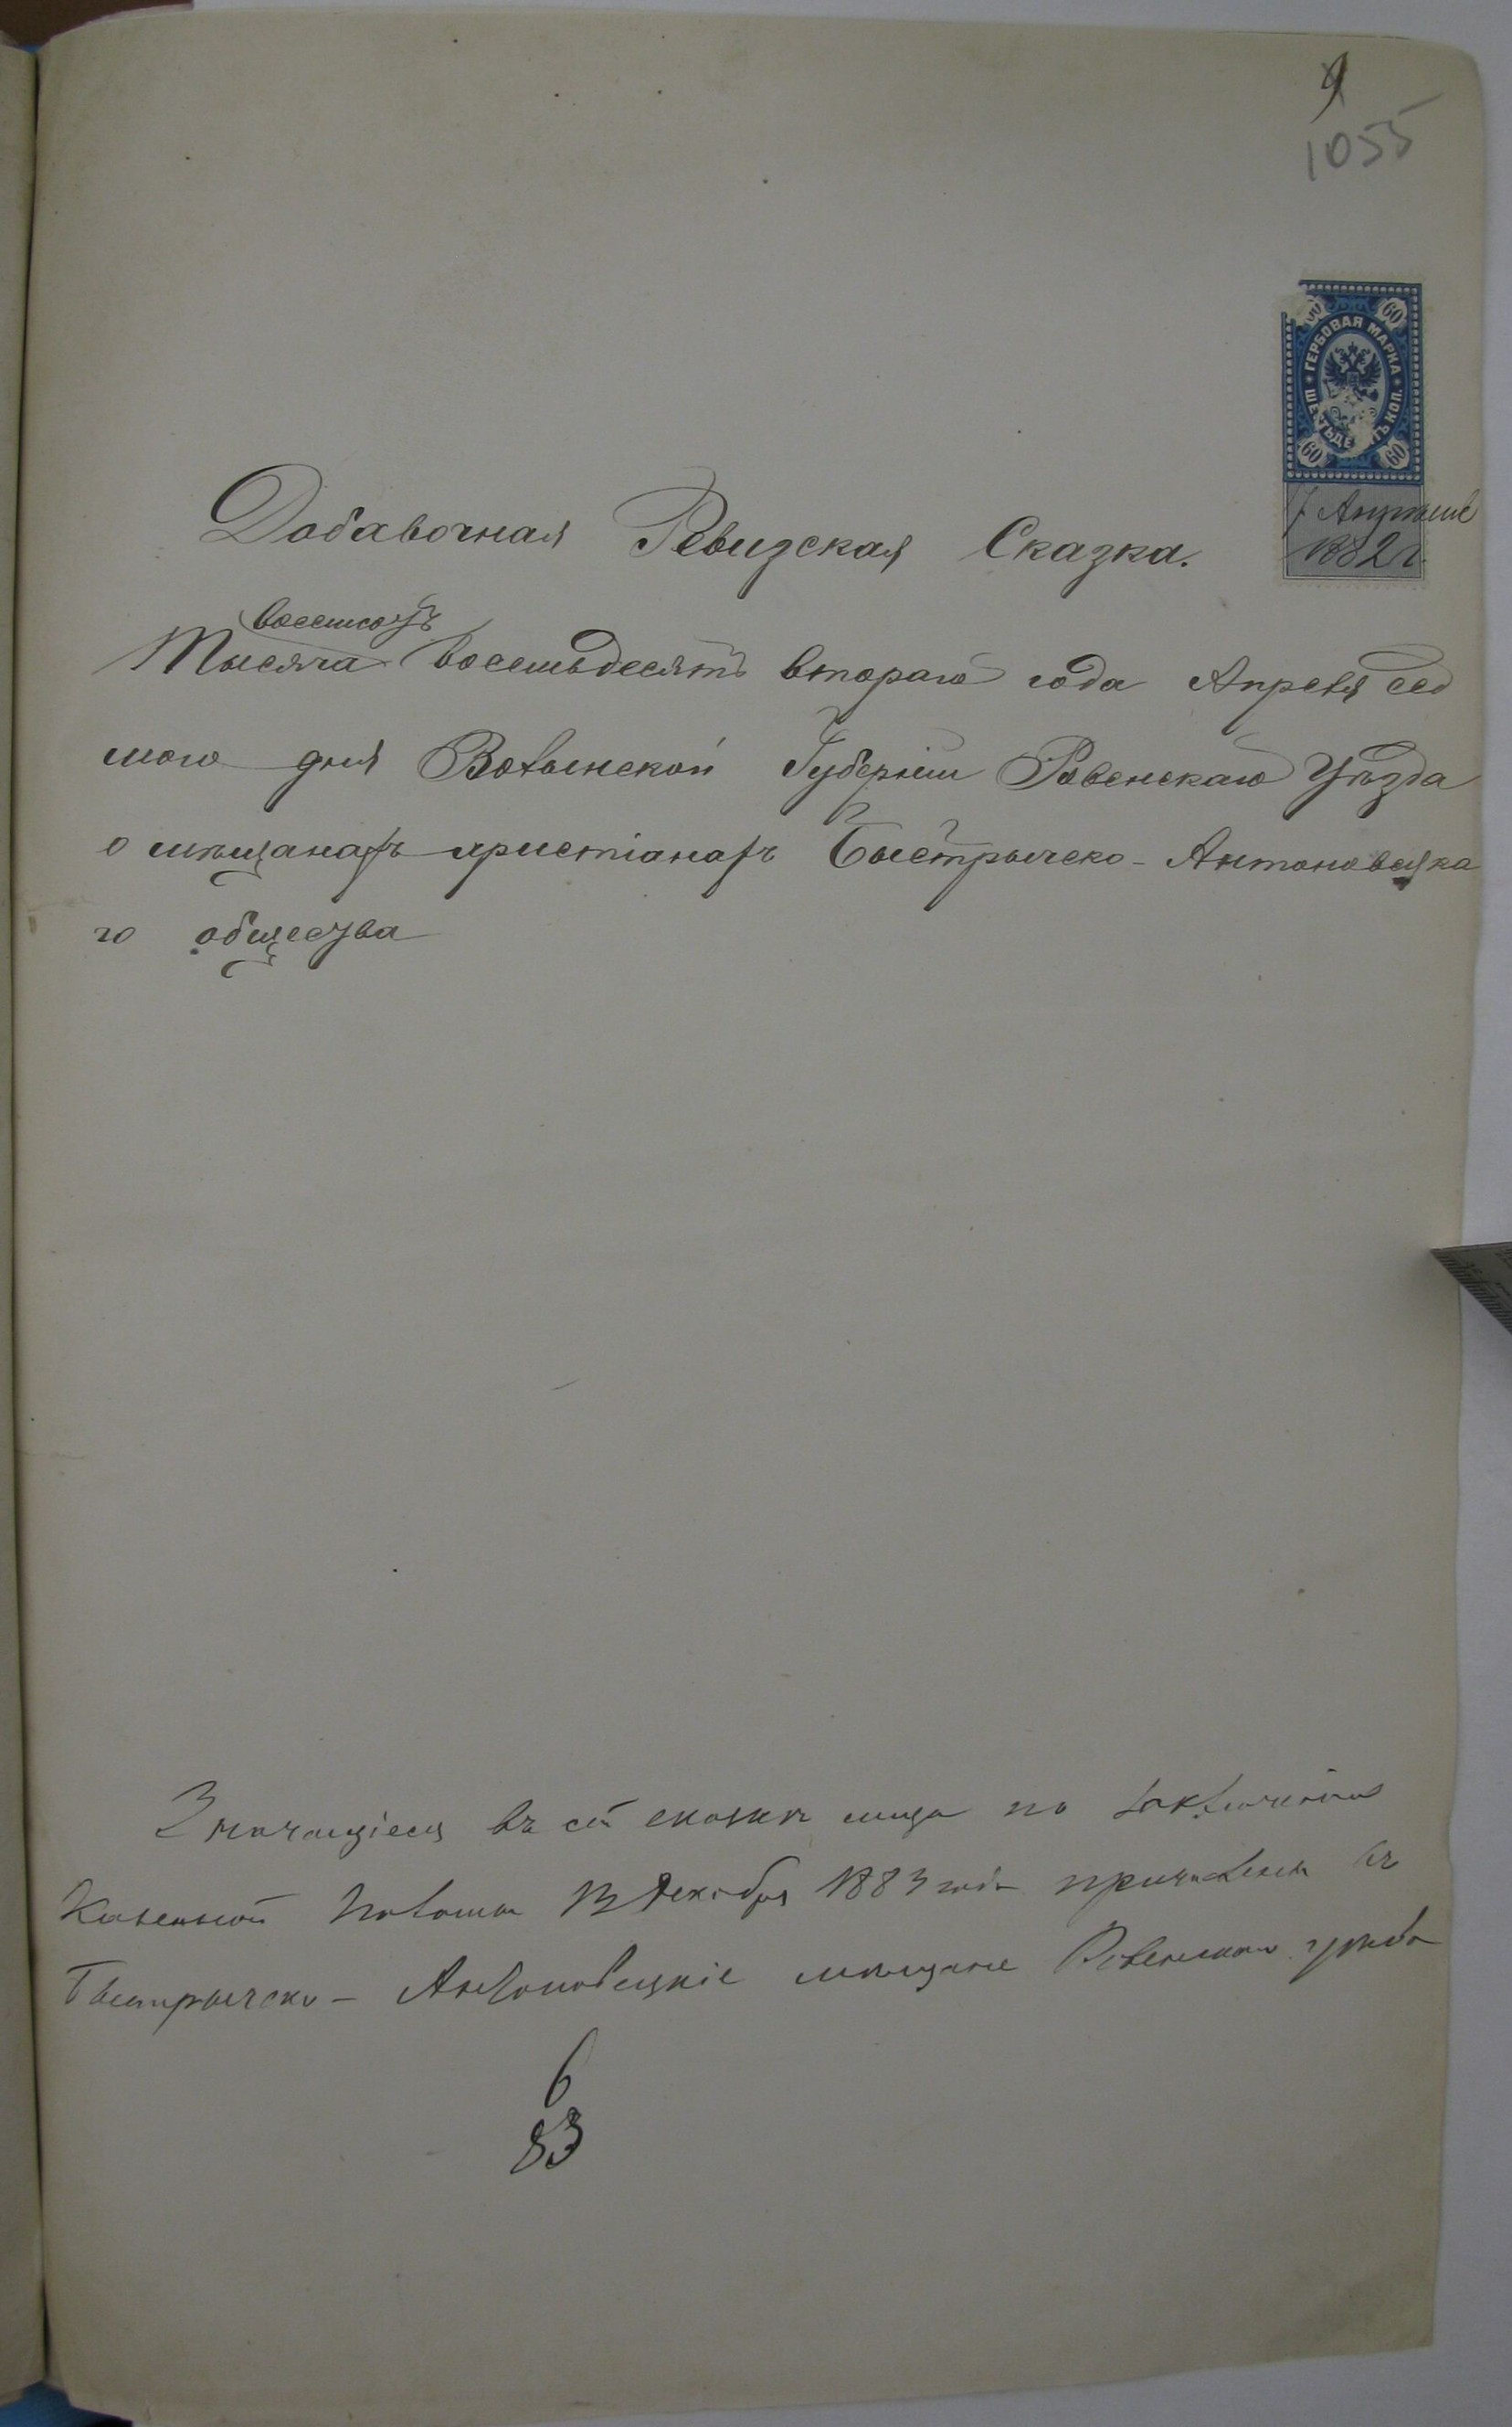 9
1055
60 60
ГЕРБОВАЯ МАРКА
КОП.
60 60
1882 г.
Добавочная Ревизская Сказка.
восемсотъ
Тысяча восемьдесятъ втораго года Апреля сед
мого дня Волынской Губерніи Ровенскаго Уѣзда
о мѣщанахъ христіанахъ Быстрычско-Антоновецка
го общества
Значащіеся въ сей сказкѣ лица по заключенію
Казенной Палаты 13 Декабря 1883 года причислены въ
Быстрычско-Антоновецкіе мѣщане Ровенскаго уѣзда
6
83